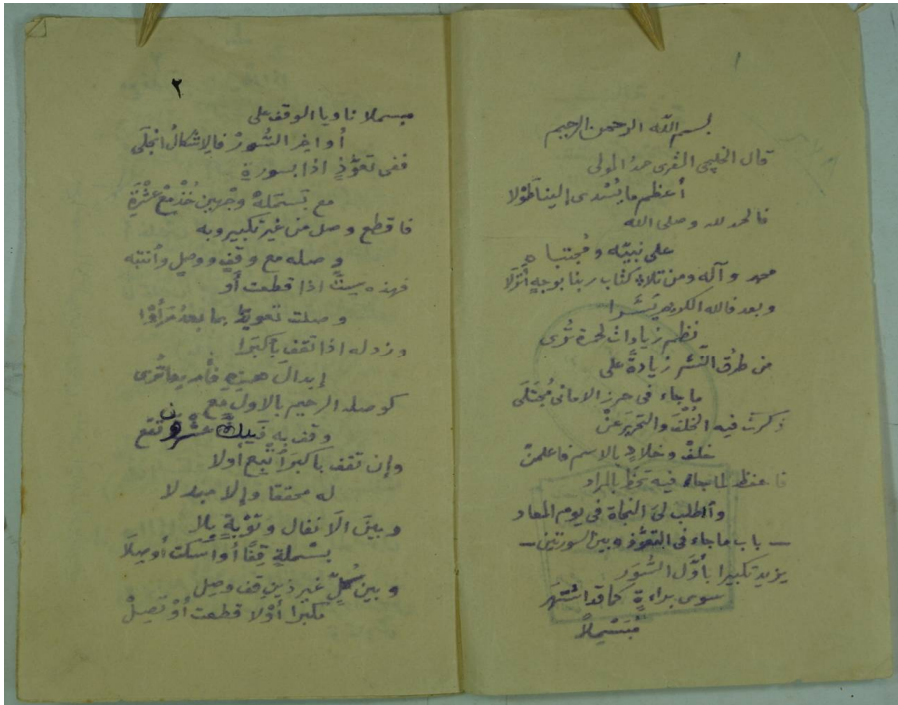 بسم الله الرحمن الرحيم
قال الخليجي المقرى حمد المولى
أعظم ما يُسْدى إلينا طَوْلا
فالحمد لله وصلى الله
على نبيّه ومُجتباه
محمد وآله ومن تلا كتاب ربنا بوجهٍ أُنْزِلَا
وبعد فالله الكريم يَسَّرا
نظم زيادات لحمزة تُرى
من طرُق النَّشْر زيادةً على
ما جاء فى حرز الامانى مُجْتَلَى
ذكرت فيه الخُلْفَ والتحريرَ عنْ
خلفْ وخلادٍ بالاسم فاعلمنْ
فاحفظ لما جاء فيه تحظَ بالمراد
واطلب لىَ النجاة فى يوم المعاد
— باب ما جاء فى التعوُّذ وبين السورتين —
يزيد تكبيرا بأوَّل السُّوَر
سوى براءةٍ كما قد اشتهر
مُبَسْمِلاً
٢
مبسملا ناويا الوقف على
أواخِر السُّورْ فالاشكالُ انجلَى
ففى تعوُّذٍ اذا بسورةِ
مع بسْمَلهْ وجهين خُذْ مَعْ عَشْرَةِ
فاقطع وصل من غير تكبير وبه
وصله مع وقفٍ ووصلٍ وانتبه
فهذه ستٌّ اذا قطعت أو
وصلت تعويذ بما بعدُ رَأَوْا
وزد له اذا تقف بأكبرا
إبدالَ همزهِ
كوصله الرحيم بالاول مع
وقف به فتلك عشرةٌ تقع
وإن تقف باكبر اتبع أولا
له محققا وإلا مبدلا
وبين الَانفال وتوْبةٍ بلا
بسْملةٍ قِفًا أو اسكت أو صِلَا
وبين كُلٍّ غير ذينِ قف وصِل
مكبرا أوْلا قطعت أوْ تصِلْ